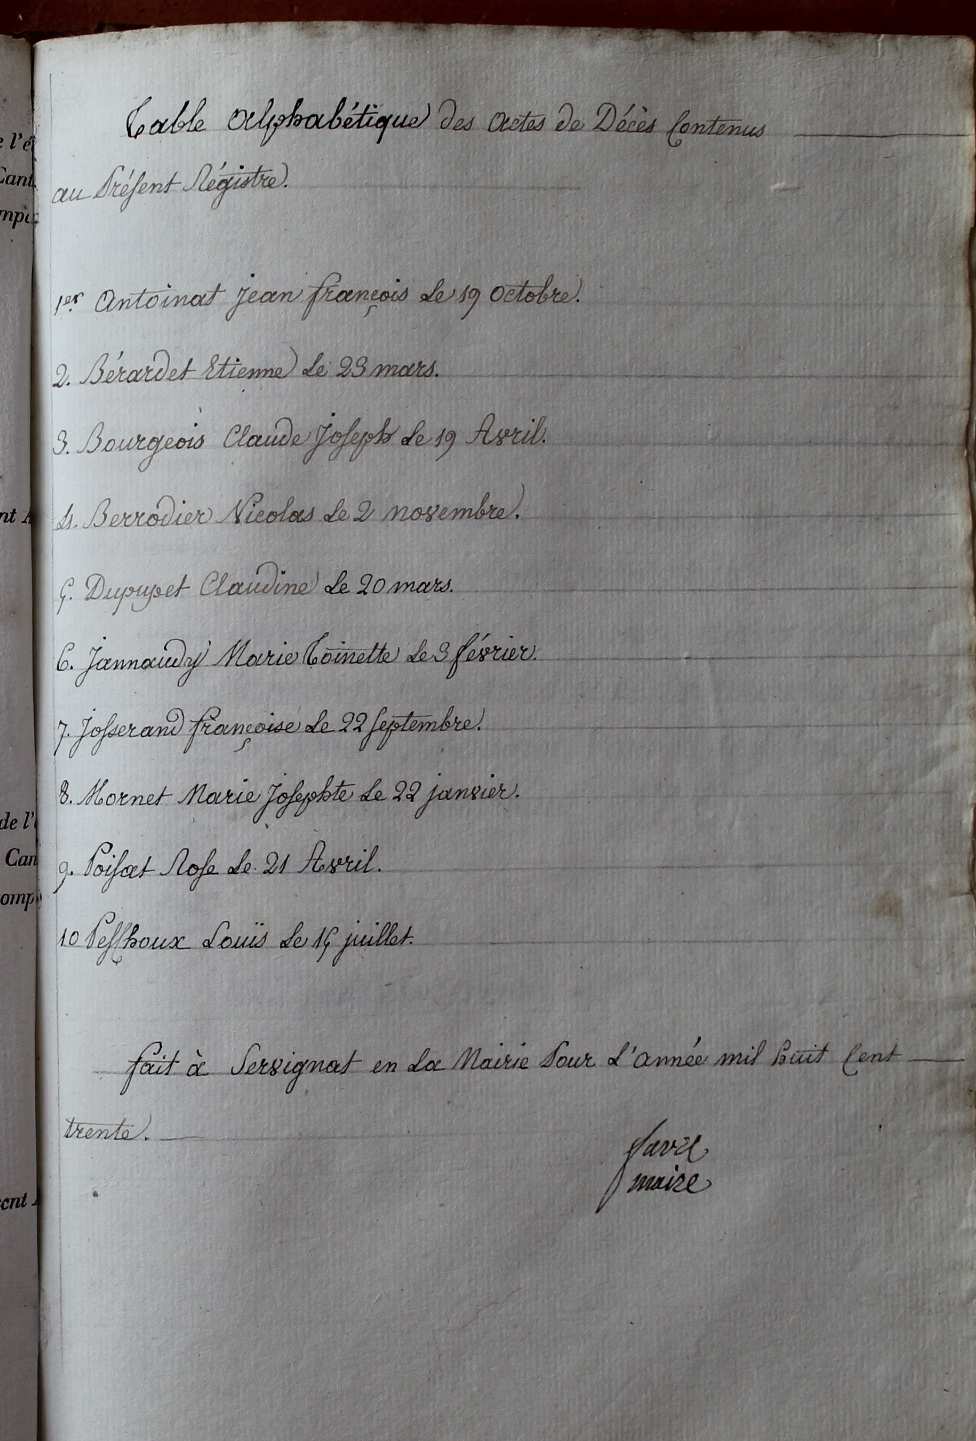 Table Alphabétique des Actes de Décès Contenus
au Présent Régistre.
1er Antoinat Jean françois Le 19 Octobre.
2. Bérardet Etienne Le 23 mars.
3. Bourgeois Claude Joseph Le 19 Avril.
4. Berrodier Nicolas Le 2 novembre.
5. Dupupet Claudine Le 20 mars.
6. Jannaudy Marie Toinette Le 3 février.
7. Josserand françoise Le 22 septembre.
8. Mornet Marie Josephte Le 22 janvier.
9. Poisat Rose Le 21 Avril.
10 Louïs Le 15 juillet.
fait à Servignat en La Mairie Pour L'année mil huit Cent
trente.
favre
maire